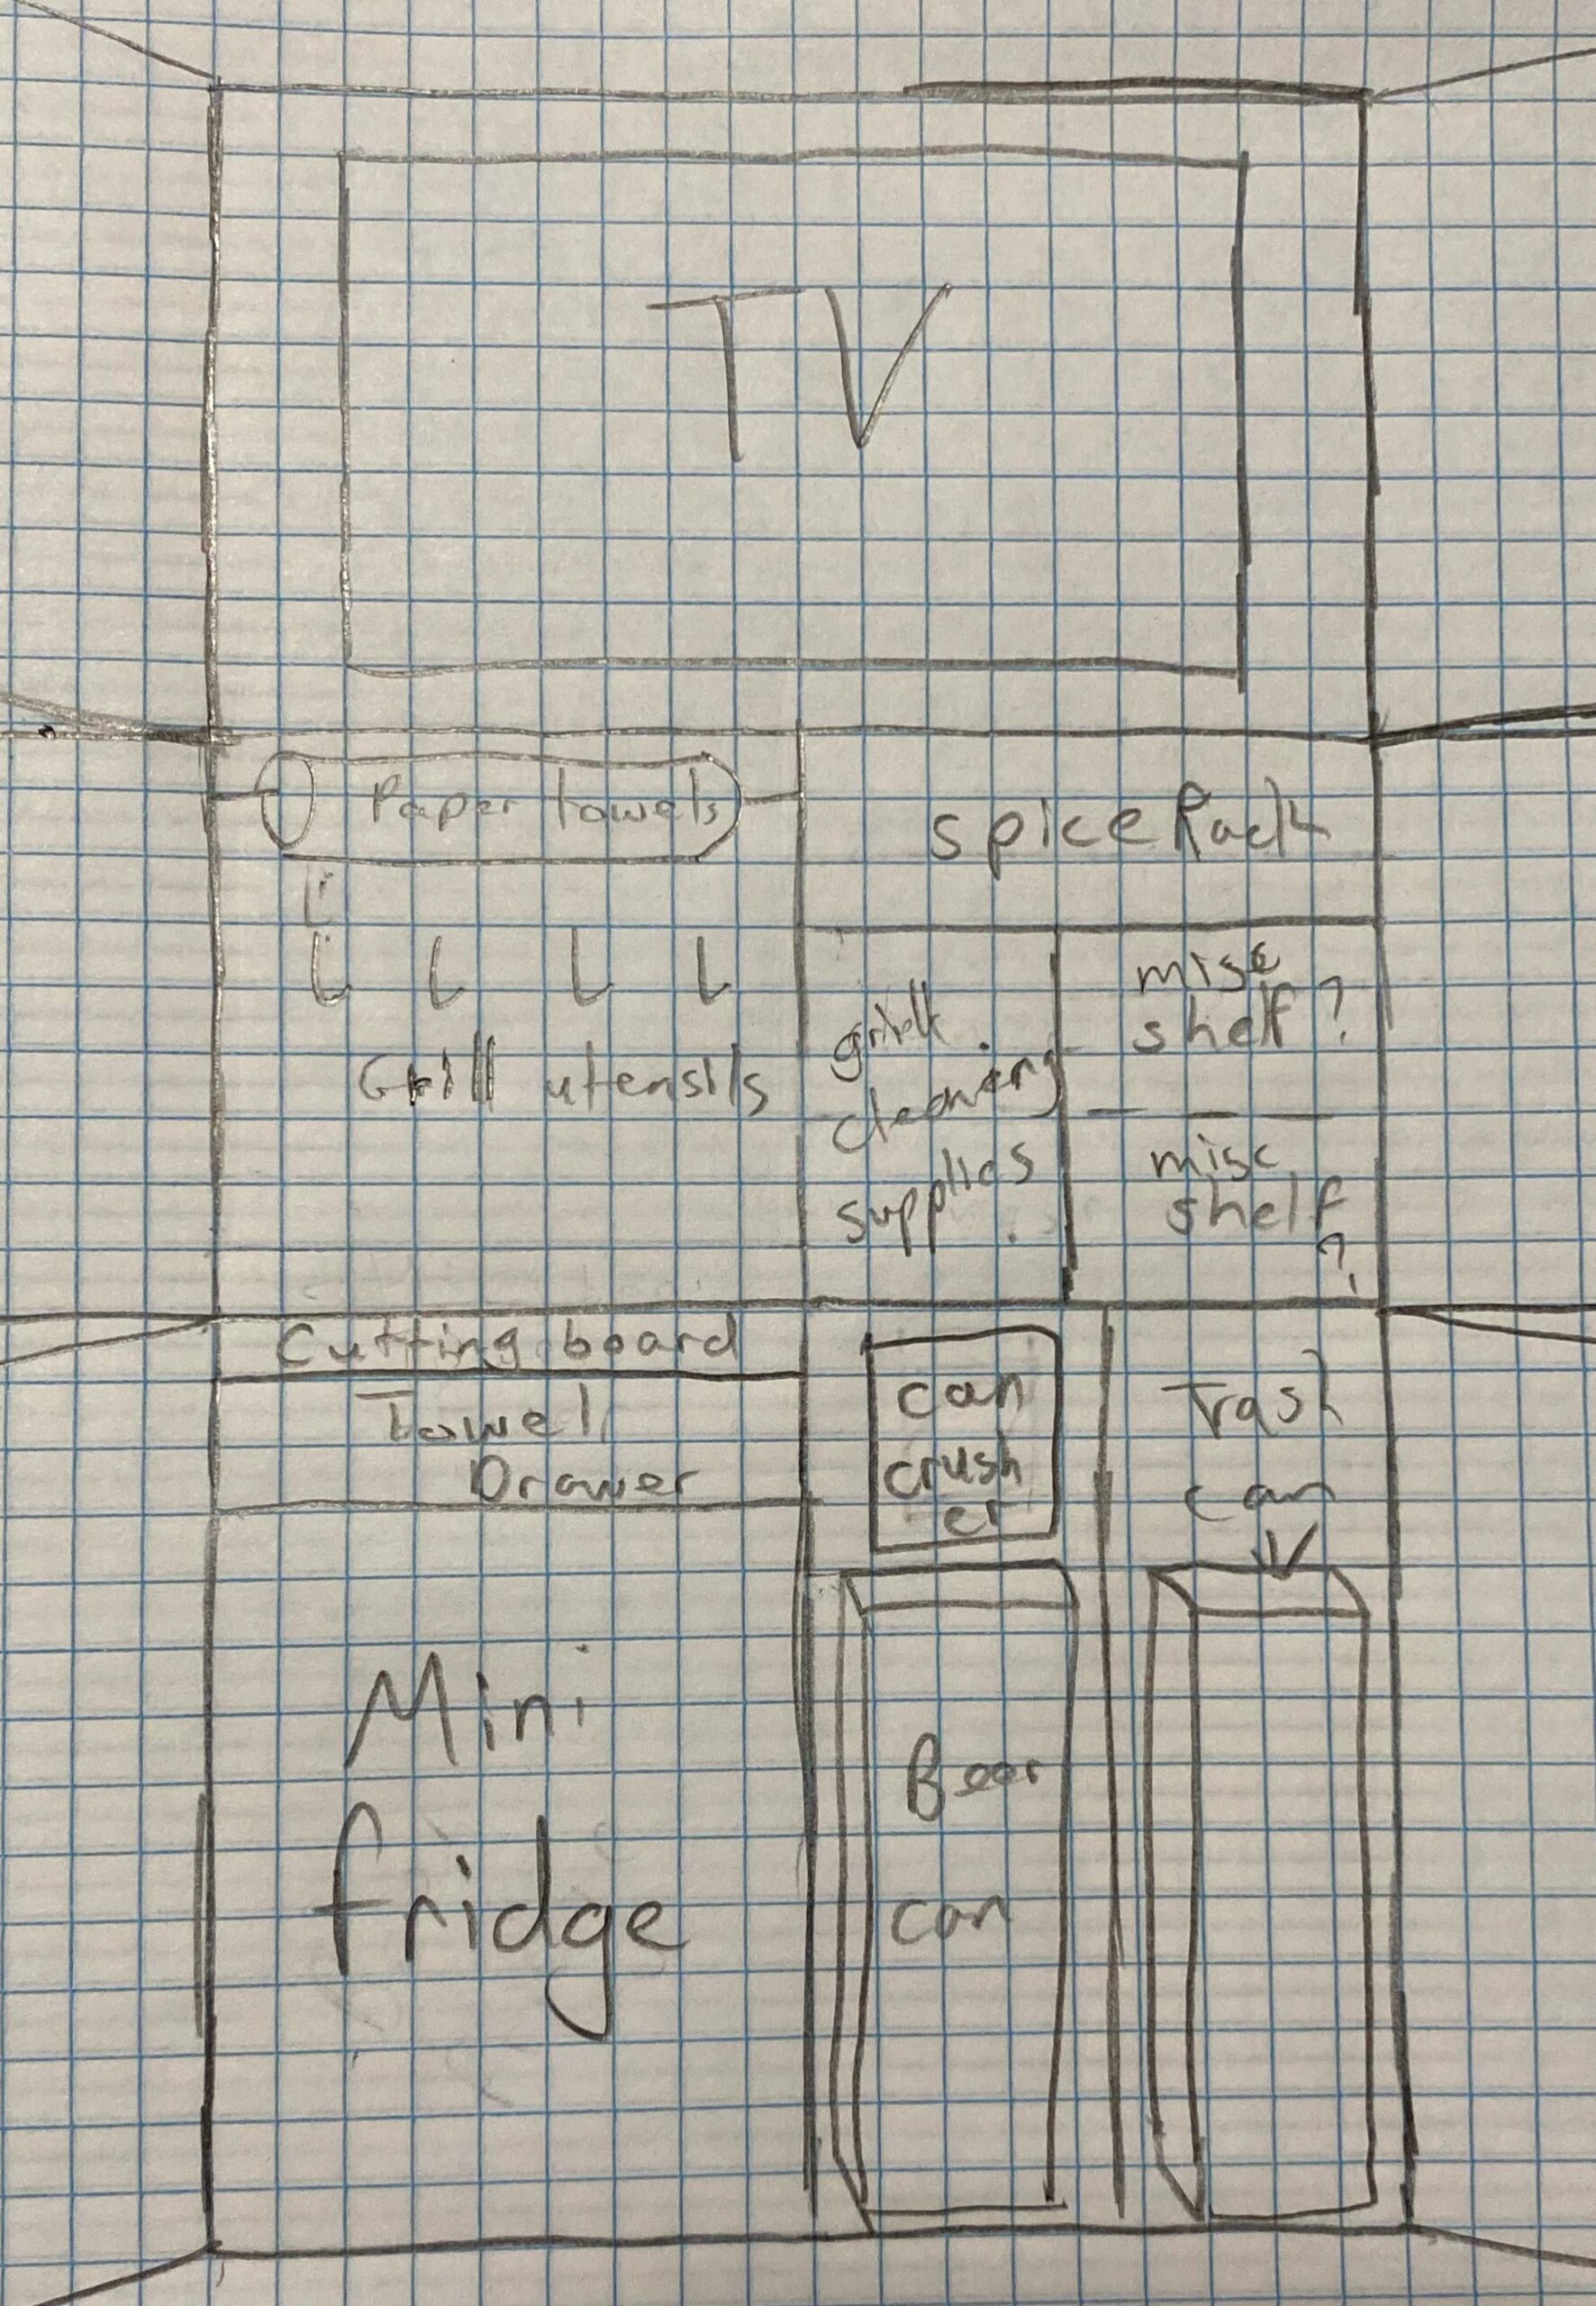 TV
Paper towels
spice Rack
Grill utensils
grill
cleaning
supplies
misc
shelf?
misc
shelf
?
Cutting board
Towel
Drawer
can
crush
er
Trash
can
Mini
fridge
Beer
can